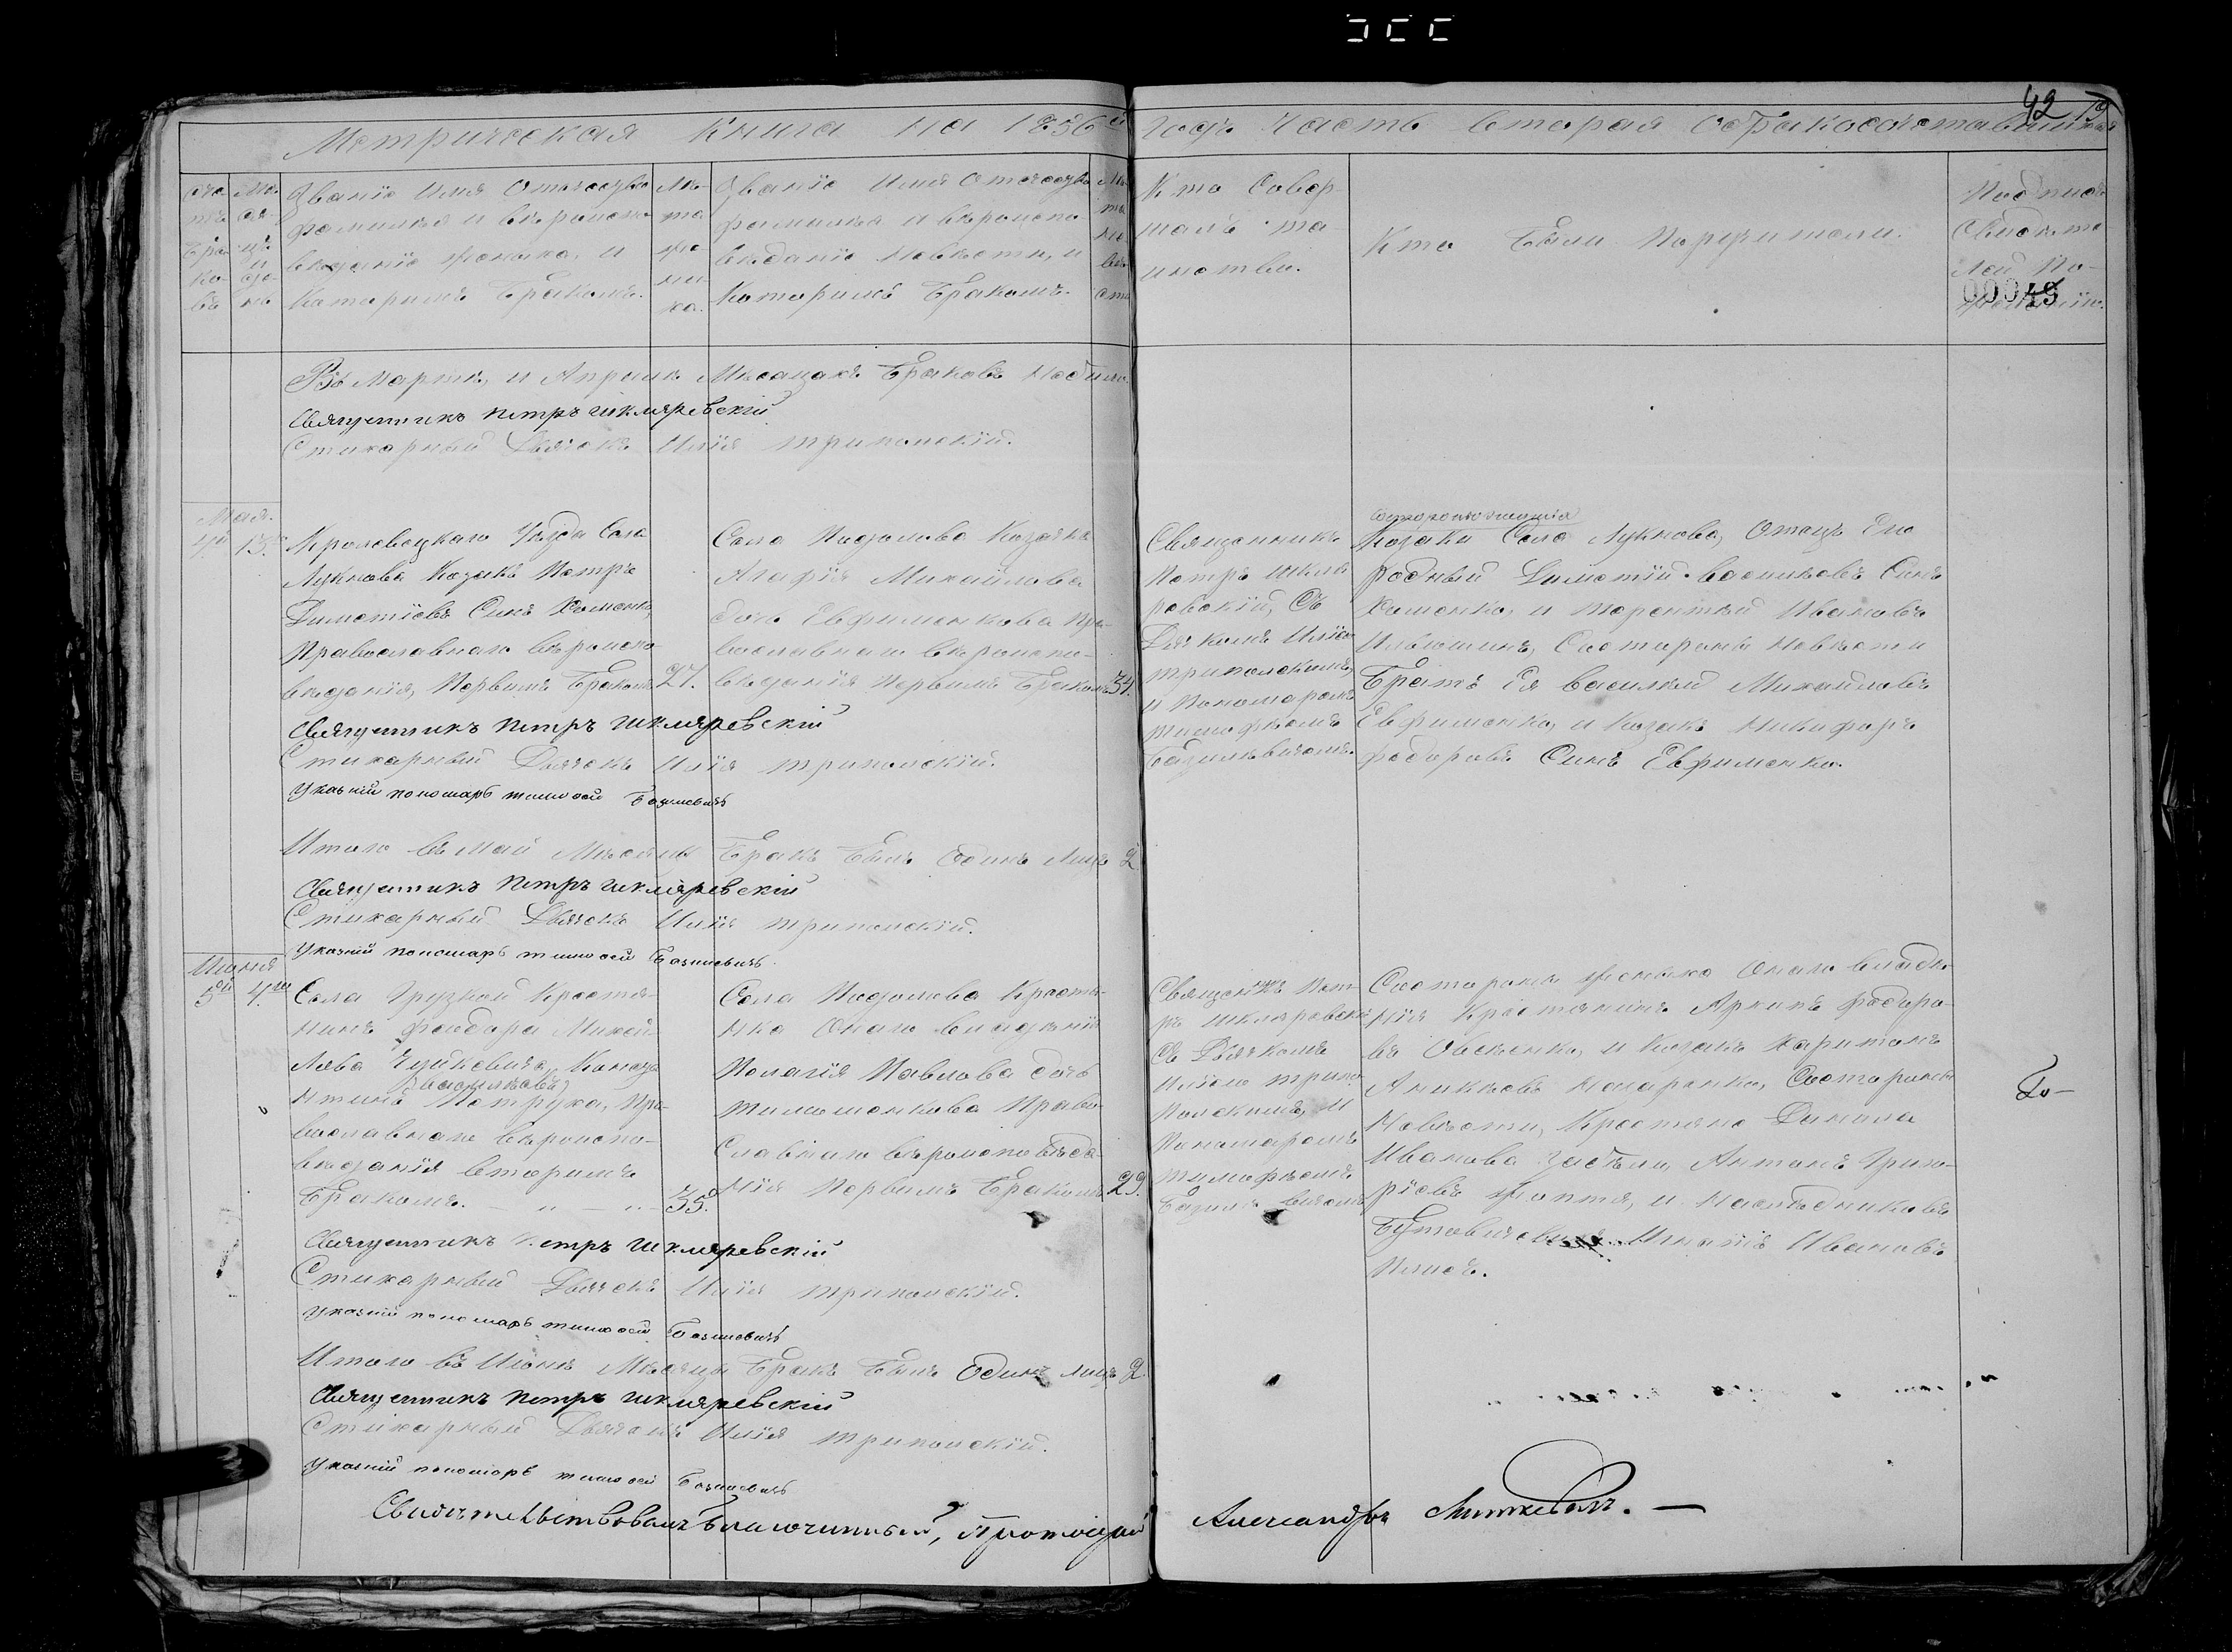 42
Метрическая Книга на 1856й Годъ Часть Вторая о бракосочетавшихся
Званіе Имя Отчество
фамилія и вѣроиспо-
вѣданіе жениха, и
Которимъ Бракомъ.
Лѣ-
та
же-
ни-
ха.
Званіе Имя Отчество
фамилія и вѣроиспо-
вѣданіе Невѣсти, и
Которимъ Бракомъ.
Кто Совер-
шалъ та-
инство.
Кто Были Поручители.
Подписъ
Свидѣте
лей По-
00049
Въ Мартѣ, и Априлѣ Мѣсацахъ Браковъ Небило.
Священникъ Петръ Шкляревскій
Стихарный Дьячокъ Илія Трипольскій.
Мая.
4й 13.
Кролевецкаго Уѣзда Села
Лукнова Козакъ Петръ
Димотіевъ Синъ Хоменко,
Православнаго вѣроиспо-
вѣданія, Первимъ Бракомъ 27.
Села Подолова Козачка
Агафія Михайлова
дочь Евфименкова Пра-
вославнаго вѣроиспо-
вѣданія Первимъ Бракомъ 34.
Священникъ
Петръ Шкля
ревскій, Съ
Дячкомъ Иліею
Трипольскимъ,
и Пономаремъ
Тимофѣемъ
Базилевичемъ.
Козаки Села Лукнова, Отецъ Его
родный Димотій Василіевъ Синъ
Хоменко, и Терентій Ивановъ
Състороны Невѣсти
Братъ Ея Василій Михайловъ
Евфименко, и Козакъ Никифоръ
Федоровъ Синъ Евфименко.
Священникъ Петръ Шкляревскій
Стихарный Дьячокъ Илія Трипольскій.
Указній пономарь Тимофей Базилевичъ
Итого въ Маи Мѣсяцѣ Бракъ Былъ Одинъ Лицъ 2
Священникъ Петръ Шкляревскій
Стихарный Дьячокъ Илія Трипольскій.
Указній пономарь Тимофей Базилевичъ.
Июня
5й 4.
Села Грузкой Крестя-
нинъ Феодора Михай-
лова Чуйкевича,
Василіевъ
Петруха, Пра-
вославнаго вѣроиспо-
вѣданія вторимъ
Бракомъ. 35.
Села Подолова Крестя-
нка Онаго владѣнія
Пелагія Павлова дочь
Тимошенкова Право-
Славнаго вѣроисповѣда-
нія Первимъ Бракомъ 29.
Священникъ Пет-
ръ Шкляревскій
Съ Дьячкомъ
Иліею Трипо
льскимъ, и
Пономаремъ
Тимофѣемъ
Базилевичемъ
Состороны жениха Онаго владѣ-
нія Крестянинъ Архипъ Федоро-
въ Овсѣенко, и Козакъ Харитонъ
Состороны
Невѣсти, Крестяне Данила
Иванова Антонъ Григо-
ріевъ и Наслѣдниковъ
Бутовичевыхъ Игнатій Ивановъ
Священникъ Петръ Шкляревскій
Стихарный Дьячокъ Илія Трипольскій.
Указній пономарь Тимофей Базилевичъ
Итого въ Июнѣ Мѣсяцѣ Бракъ Былъ Одинъ Лицъ 2.
Священникъ Петръ Шкляревскій
Стихарный Дьячокъ Илія Трипольскій.
Указній пономарь Тимофей Базилевичъ
Свидѣтельствовалъ Благочинный, Протоіерей Александръ